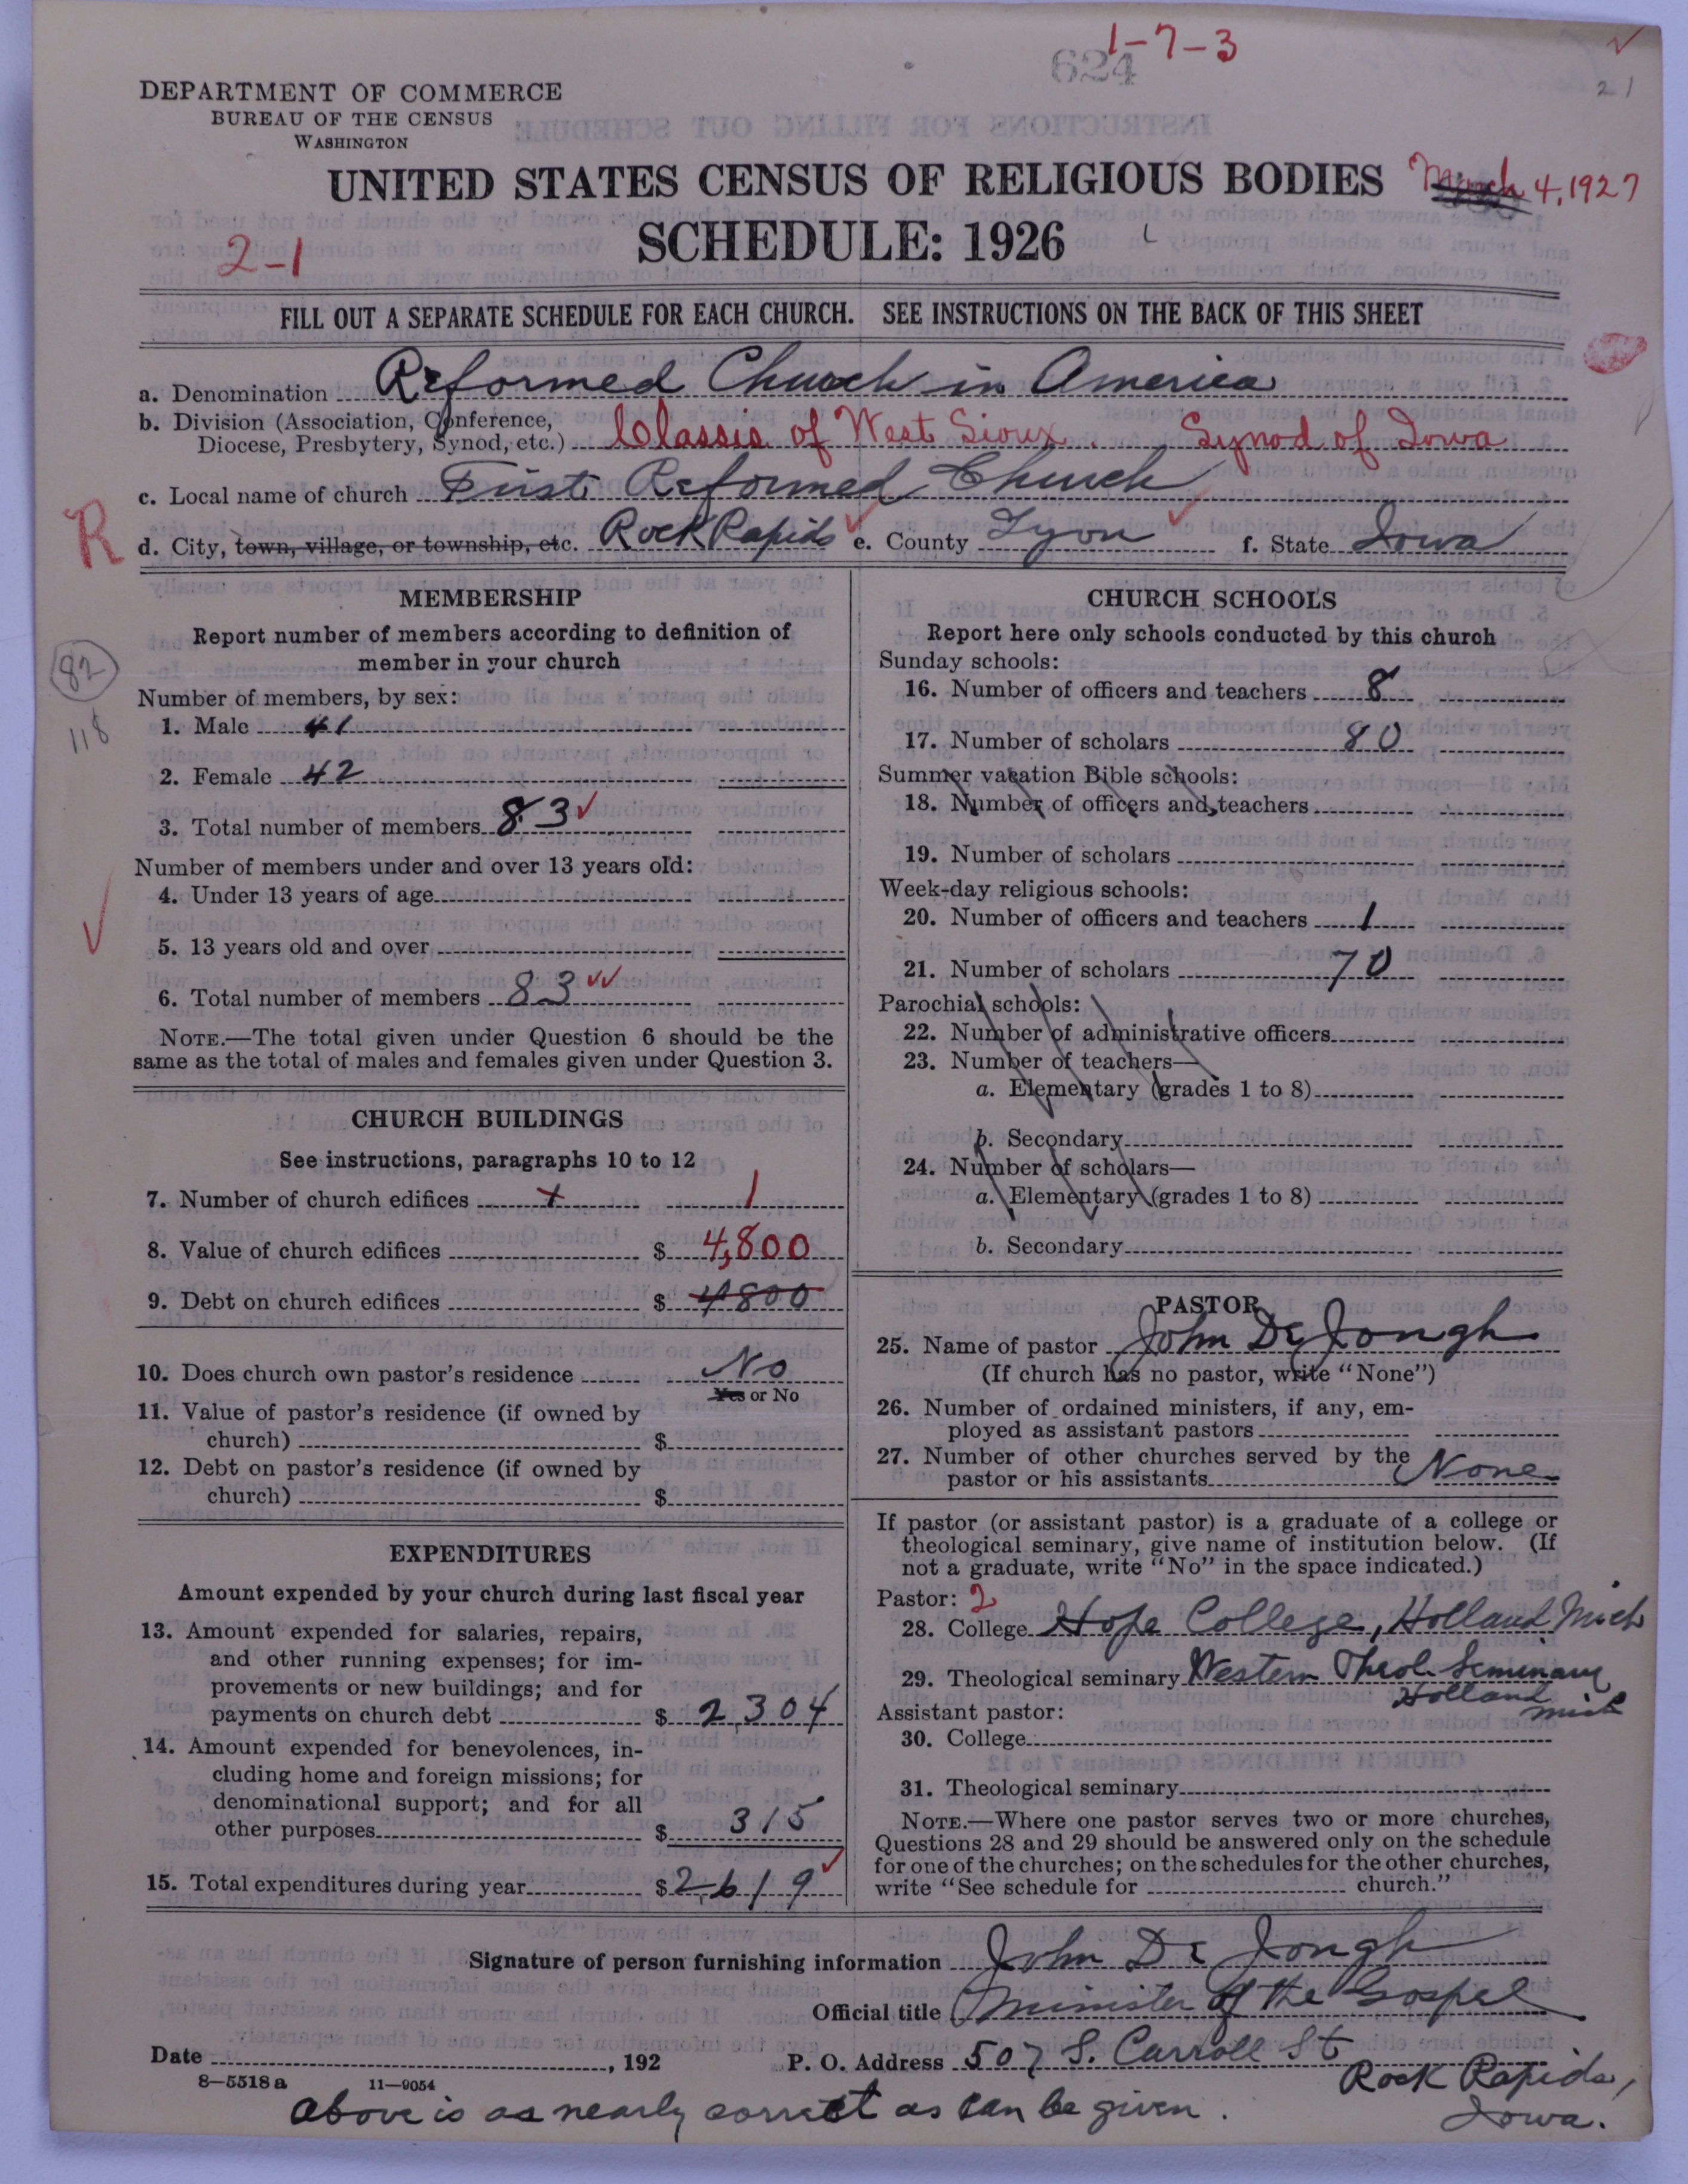 1-7-3
624
21
DEPARTMENT OF COMMERCE
BUREAU OF THE CENSUS
WASHINGTON
UNITED STATES CENSUS OF RELIGIOUS BODIES
March 4, 1927
SCHEDULE: 1926
2-1
FILL OUT A SEPARATE SCHEDULE FOR EACH CHURCH. SEE INSTRUCTIONS ON THE BACK OF THIS SHEET
a. Denomination Reformed Church in America
b. Division (Association, Conference,
Diocese, Presbytery, Synod, etc.) Classis of West Sioux. Synod of Iowa
c. Local name of church First Reformed Church
R
d. City, town, village, or township, etc. Rock Rapids e. County Lyon f. State Iowa
MEMBERSHIP
Report number of members according to definition of
member in your church
82
118
Number of members, by sex:
1. Male 41
2. Female 42
3. Total number of members 83
Number of members under and over 13 years old:
4. Under 13 years of age
5. 13 years old and over
6. Total number of members 83
NOTE.—The total given under Question 6 should be the
same as the total of males and females given under Question 3.
CHURCH BUILDINGS
See instructions, paragraphs 10 to 12
7. Number of church edifices 1 1
8. Value of church edifices $ 4,800
9. Debt on church edifices $ 4800
10. Does church own pastor's residence No
Yes or No
11. Value of pastor's residence (if owned by
church) $
12. Debt on pastor's residence (if owned by
church) $
EXPENDITURES
Amount expended by your church during last fiscal year
13. Amount expended for salaries, repairs,
and other running expenses; for im-
provements or new buildings; and for
payments on church debt $ 2304
14. Amount expended for benevolences, in-
cluding home and foreign missions; for
denominational support; and for all
other purposes $ 315
15. Total expenditures during year $ 2619
CHURCH SCHOOLS
Report here only schools conducted by this church
Sunday schools:
16. Number of officers and teachers 8
17. Number of scholars 80
Summer vacation Bible schools:
18. Number of officers and teachers
19. Number of scholars
Week-day religious schools:
20. Number of officers and teachers 1
21. Number of scholars 70
Parochial schools:
22. Number of administrative officers
23. Number of teachers—
a. Elementary (grades 1 to 8)
b. Secondary
24. Number of scholars—
a. Elementary (grades 1 to 8)
b. Secondary
PASTOR
25. Name of pastor John De Jongh
(If church has no pastor, write "None")
26. Number of ordained ministers, if any, em-
ployed as assistant pastors
27. Number of other churches served by the
pastor or his assistants None
If pastor (or assistant pastor) is a graduate of a college or
theological seminary, give name of institution below. (If
not a graduate, write "No" in the space indicated.)
Pastor: 2
28. College Hope College, Holland Mich
29. Theological seminary Western Theol. Seminary
Holland
Mich
Assistant pastor:
30. College
31. Theological seminary
NOTE.—Where one pastor serves two or more churches,
Questions 28 and 29 should be answered only on the schedule
for one of the churches; on the schedules for the other churches,
write "See schedule for church."
Signature of person furnishing information John De Jongh
Official title Minister of the Gospel
Date , 192
P. O. Address 507 S. Carroll St
Rock Rapids,
Iowa.
8—5518a 11—9054
Above is as nearly correct as can be given.